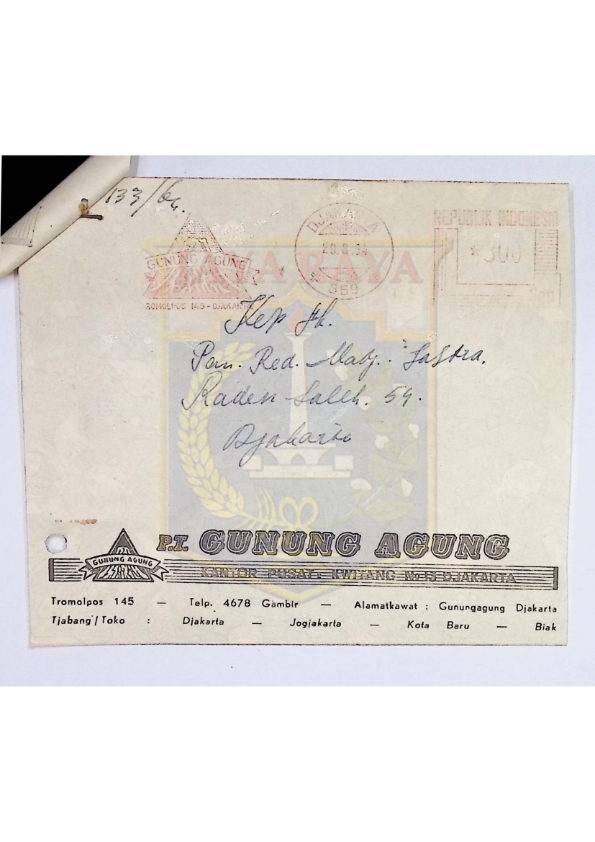 133/64.
GUNUNG AGUNG
TROMOLPOS 145 - DJAKARTA
DJAKARTA
359
REPUBLIK INDONESIA
300
JAYA RAYA
Kep Jth.
Pem. Red. Madj. Sastra.
Raden Saleh. 54.
Djakarta
GUNUNG AGUNG
P.T. GUNUNG AGUNG
KANTOR PUSAT : KWITANG No. 13 DJAKARTA
Tromolpos 145 — Telp. 4678 Gambir — Alamatkawat : Gunungagung Djakarta
Tjabang/Toko : Djakarta — Jogjakarta — Kota Baru — Biak